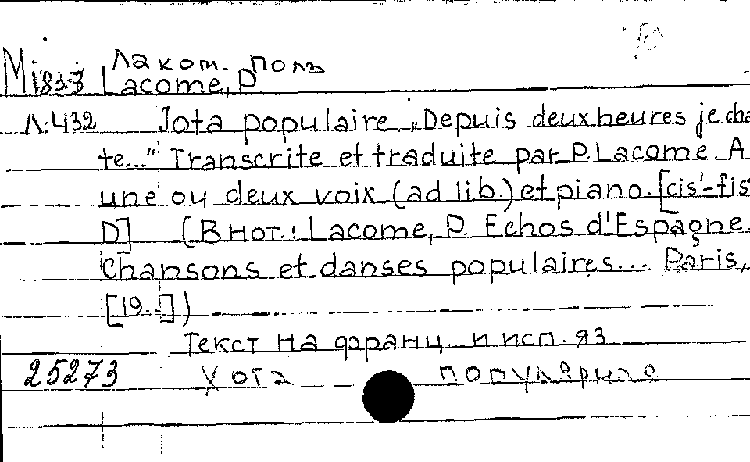 Лаком. Поль
Mi 8з7 Lacome, P
Л.432 Jota populaire „Depuis deux heures je cha
te..." Transcrite et traduite par P. Lacome. A
une ou deux voix (ad lib.) et piano. [cis'-fis
D] (В нот.: Lacome, P. Echos d'Espagne.
Chansons et danses populaires... Paris,
[19..])
Текст на франц. и исп. яз
25273 Хота популярило